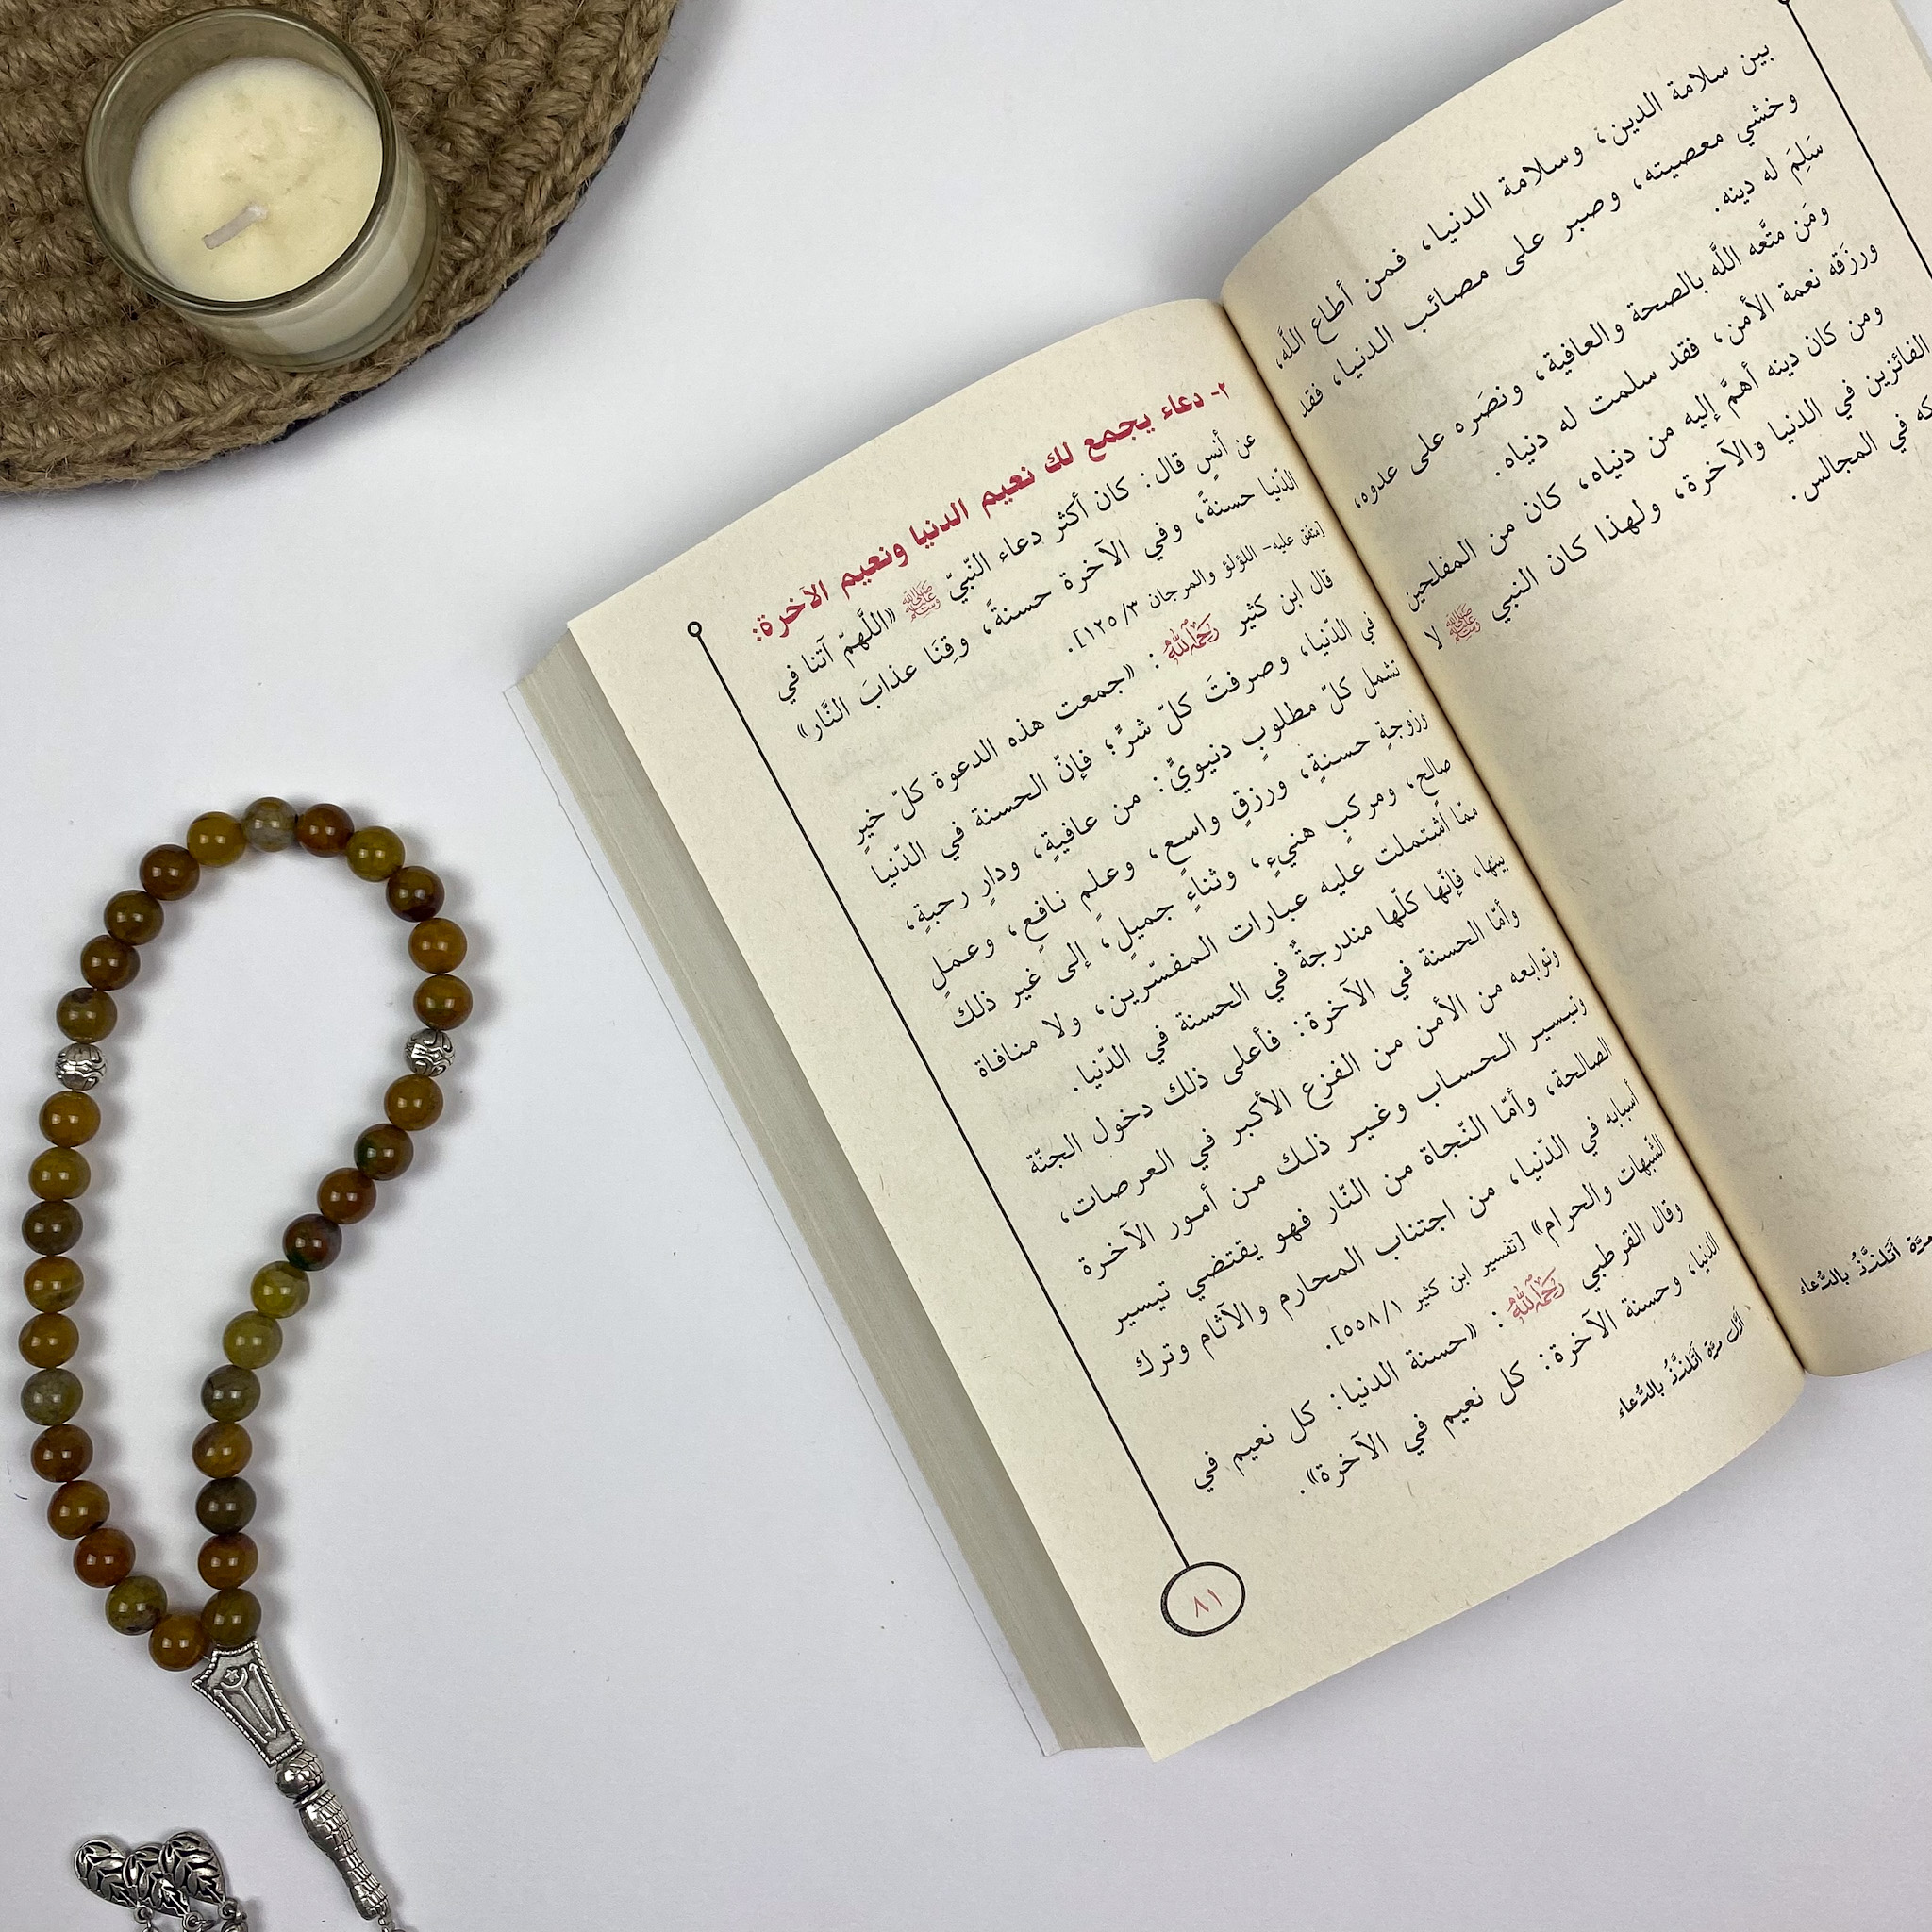 بين سلامة الدين، وسلامة الدنيا، فمن أطاع اللَّه،
وخشي معصيته، وصبر على مصائب الدنيا، فقد
سَلِمَ له دينه.
ومَن متَّعه اللَّه بالصحة والعافية، ونصَره على عدوه،
ورزَقه نعمة الأمن، فقد سلمت له دنياه.
ومن كان دينه أهمَّ إليه من دنياه، كان من المفلحين
الفائزين في الدنيا والآخرة، ولهذا كان النبي ﷺ لا
في المجالس.
أتلذَّذُ بالدُّعاء
٢- دعاء يجمع لك نعيم الدنيا ونعيم الآخرة:
عن أنسٍ قال: كان أكثر دعاء النّبيّ ﷺ «اللَّهمّ آتنا في
الدّنيا حسنةً، وفي الآخرة حسنةً، وقِنَا عذابَ النَّار»
[متفق عليه- اللؤلؤ والمرجان ٣/ ١٢٥].
قال ابن كثير رَحِمَهُ اللَّهُ: «جمعت هذه الدعوة كلّ خيرٍ
في الدّنيا، وصرفتَ كلّ شرٍّ؛ فإنّ الحسنة في الدّنيا
تشمل كلّ مطلوبٍ دنيويٍّ: من عافيةٍ، ودارٍ رحبةٍ،
وزوجةٍ حسنةٍ، ورزقٍ واسعٍ، وعلمٍ نافعٍ، وعملٍ
صالحٍ، ومركبٍ هنيءٍ، وثناءٍ جميلٍ، إلى غير ذلك
ممّا اشتملت عليه عبارات المفسّرين، ولا منافاة
بينها، فإنّها كلّها مندرجةٌ في الحسنة في الدّنيا.
وأمّا الحسنة في الآخرة: فأعلى ذلك دخول الجنّة
وتوابعه من الأمن من الفزع الأكبر في العرصات،
وتيسير الحساب وغير ذلك من أمور الآخرة
الصالحة، وأمّا النّجاة من النّار فهو يقتضي تيسير
أسبابه في الدّنيا، من اجتناب المحارم والآثام وترك
الشّبهات والحرام» [تفسير ابن كثير ١/ ٥٥٨].
وقال القرطبي رَحِمَهُ اللَّهُ: «حسنة الدنيا: كل نعيم في
الدنيا، وحسنة الآخرة: كل نعيم في الآخرة».
أوّل مرّة أتلذَّذُ بالدُّعاء
٨١